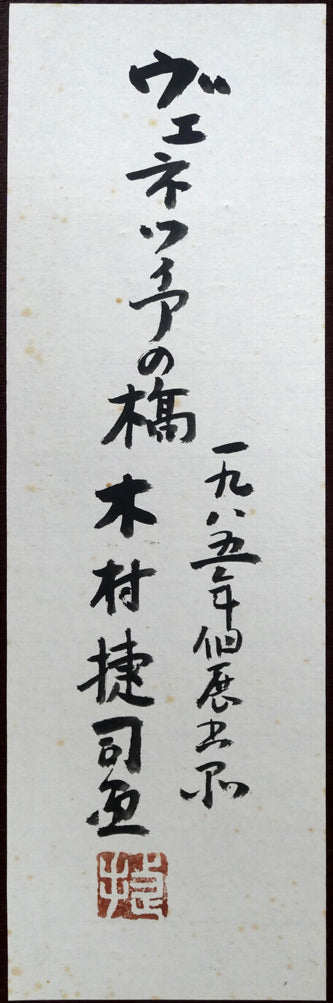 ヴェネツィアの橋 木村捷司画
一九八五年個展出品
捷